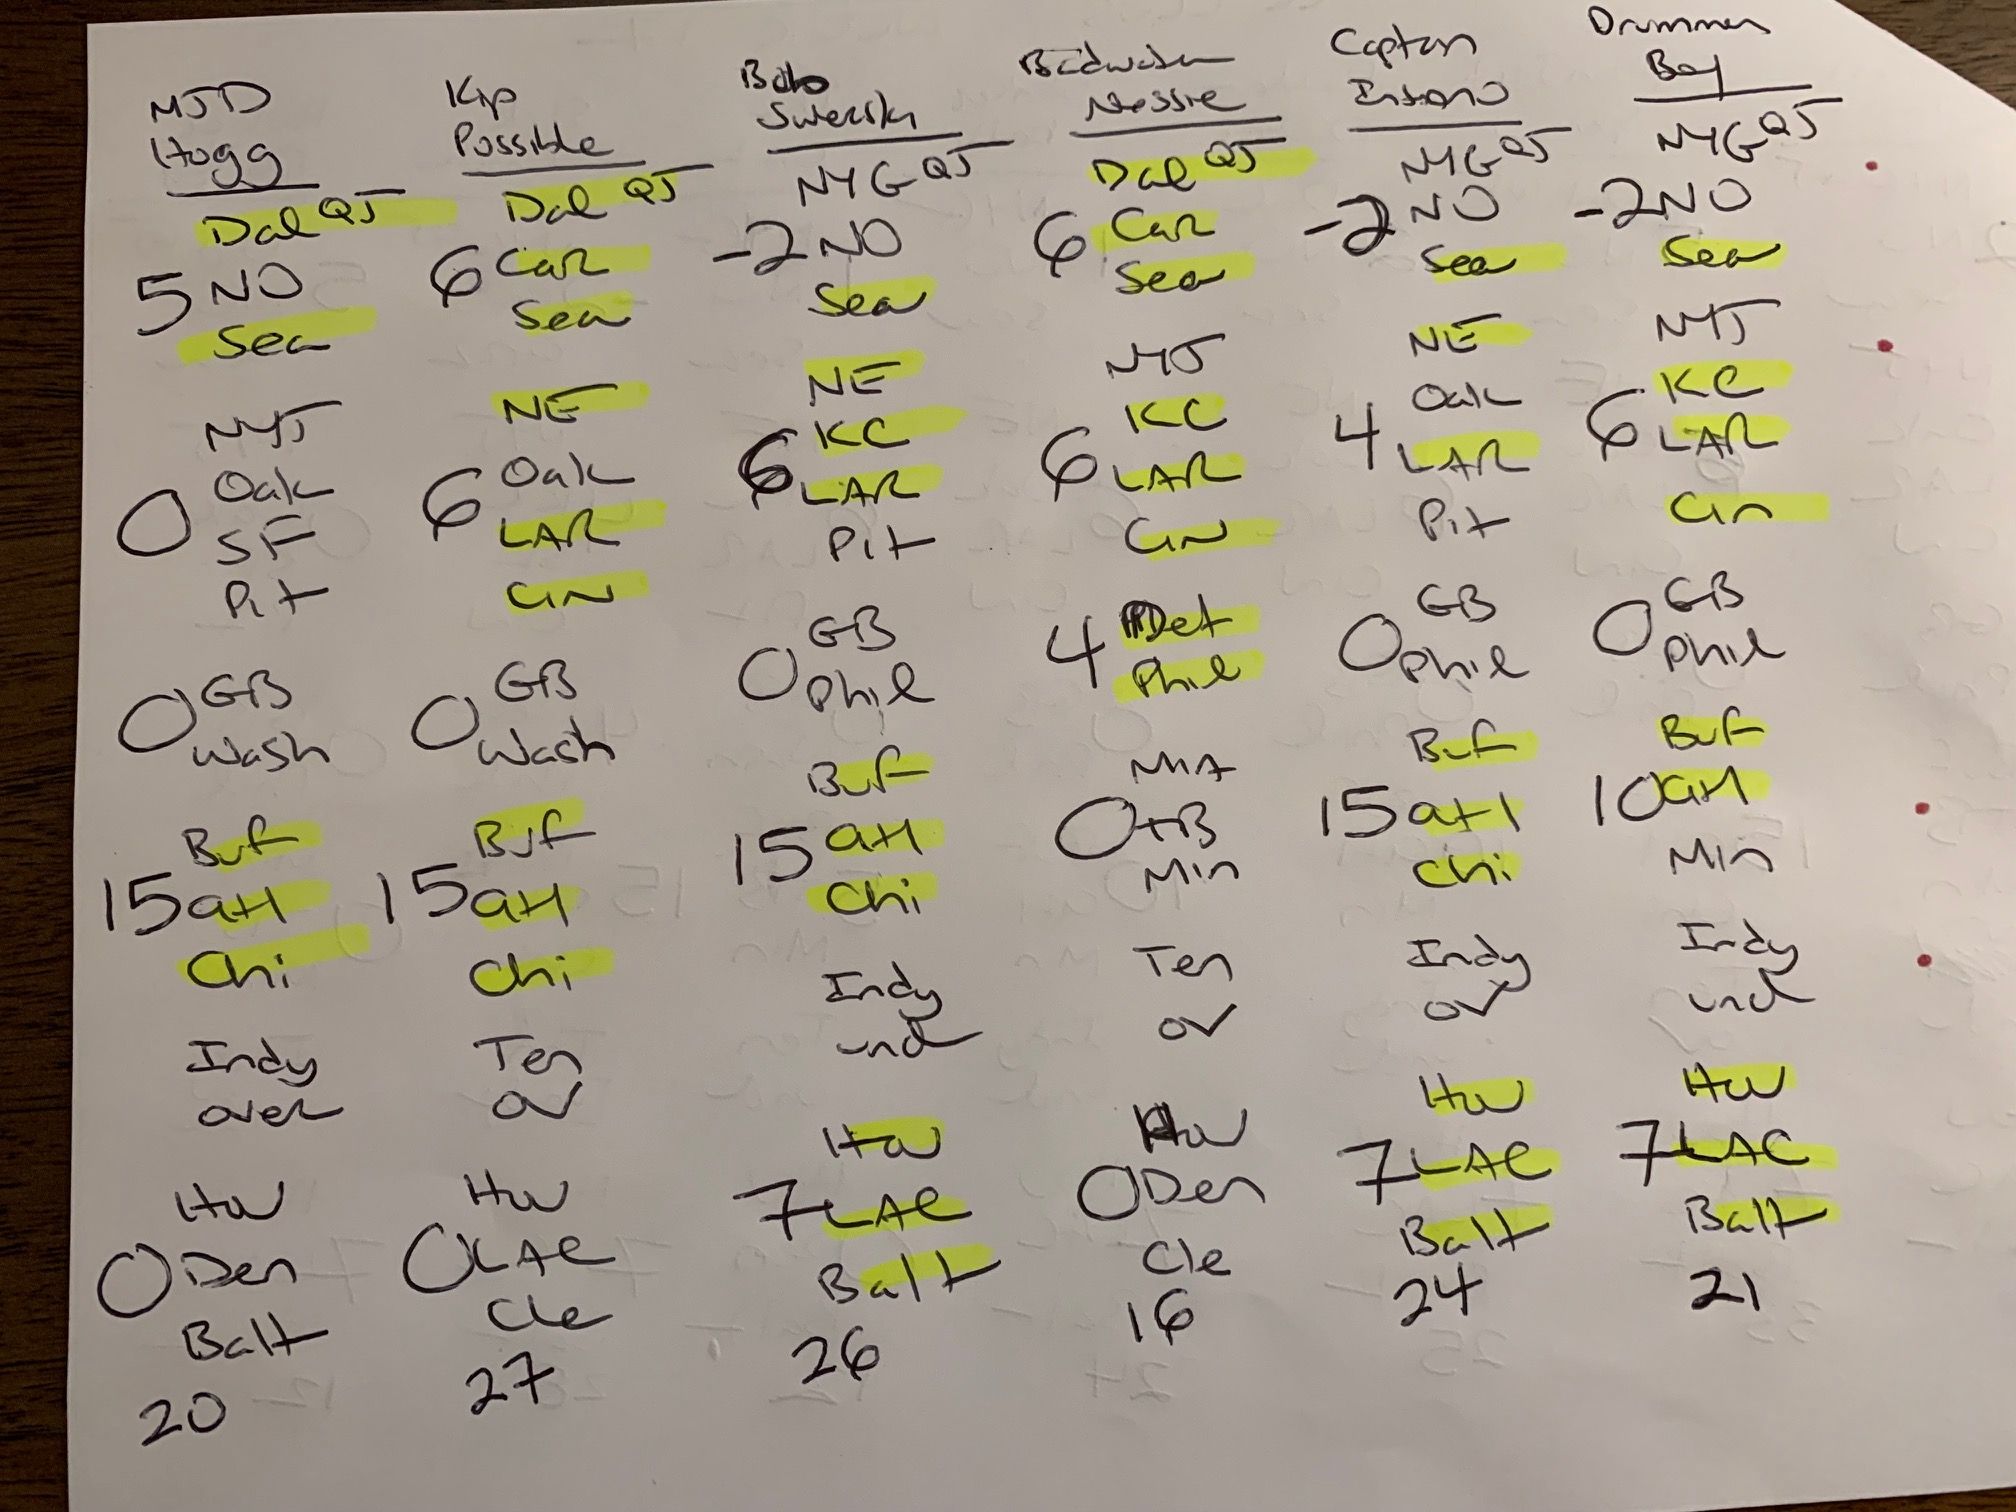 MJD
Hogg
Dal QJ
5 NO
Sea
NYJ
Oak
0 SF
Pit
0 GB
Wash
Buf
15 atl
Chi
Indy
over
Hou
0 Den
Balt
20
Kip
Possible
Dal QJ
6 Car
Sea
NE
6 Oak
LAR
Cin
0 GB
Wash
Buf
15 atl
Chi
Ten
ov
Hou
0 LAC
Cle
27
Bob
Swerski
NYG QJ
-2 NO
Sea
NE
6 KC
LAR
Pit
0 GB
Phil
Buf
15 atl
Chi
Indy
und
Hou
7 LAC
Balt
26
Badwater
Nessie
Dal QJ
6 Car
Sea
NYJ
KC
6 LAR
Cin
4 Det
Phil
MIA
0 TB
Min
Ten
ov
Hou
0 Den
Cle
16
Captan
NYG QJ
-2 NO
Sea
NE
4 Oak
LAR
Pit
0 GB
Phil
Buf
15 atl
Chi
Indy
ov
Hou
7 LAC
Balt
24
Drummer
Boy
NYG QJ
-2 NO
Sea
NYJ
KC
6 LAR
Cin
0 GB
Phil
Buf
10 atl
Min
Indy
und
Hou
7 LAC
Balt
21